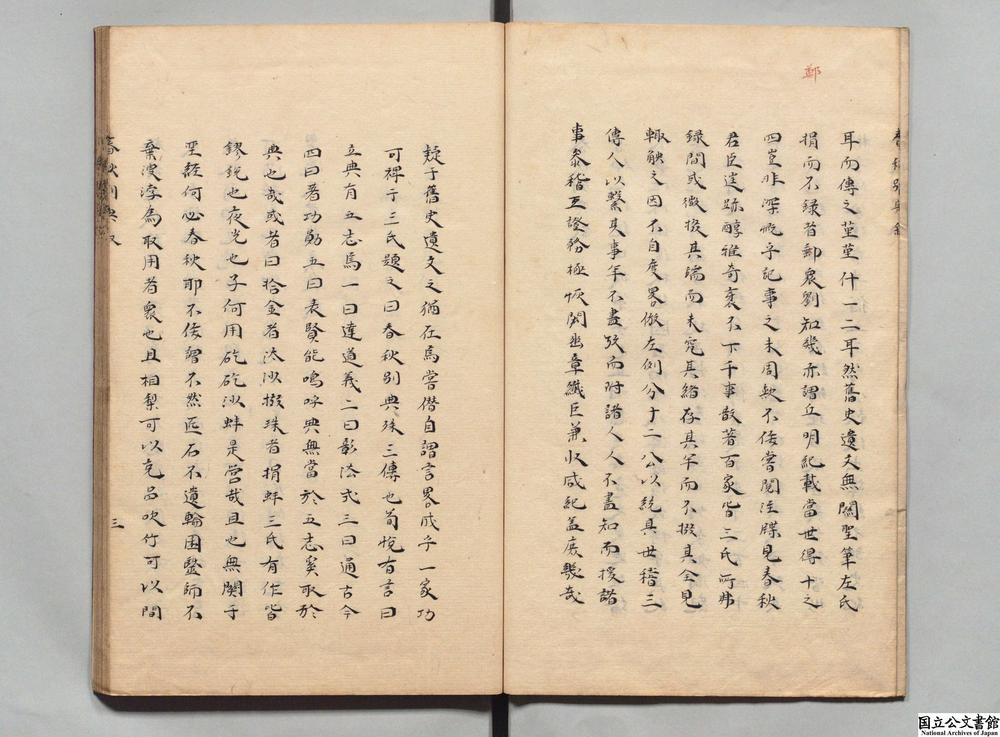 鄭
耳而傳之堇堇什一二耳然舊史遺文無關聖筆左氏
捐而不錄者鄭衆劉知幾亦謂丘明紀載當世得十之
四豈非深慨乎記事之未周歟不佞嘗閱往牒見春秋
君臣遺跡醇雅奇邪不下千事散著百家皆三氏所弗
録間或微掇其端而未究其緒存其半而不掇其全見
輒觖之因不自度畧倣左例分十二公以統其世稽三
傳人以繫其事年不盡攷而附諸人人不盡知而援諸
事叅稽互證務極恢閎幽章纖巨兼收咸紀盖庶幾哉
疑于舊史遺文之猶在焉嘗僭自謂言畧成乎一家功
可裨于三氏題之曰春秋别典殊三傳也荀悅有言曰
立典有五志焉一曰達道義二曰彰法式三曰通古今
四曰著功勛五曰表賢能嗚呼典無當於五志奚取於
典也哉或者曰拾金者汰沙掇珠者捐蚌三氏有作皆
鏐銳也夜光也子何用矻矻沙蚌是営哉且也無関于
聖經何必春秋耶不佞曽不然匹石不遺輪囷毉師不
棄溲浡為取用者衆也且相梨可以充品吹竹可以間
春秋别典叙
三
国立公文書館
National Archives of Japan